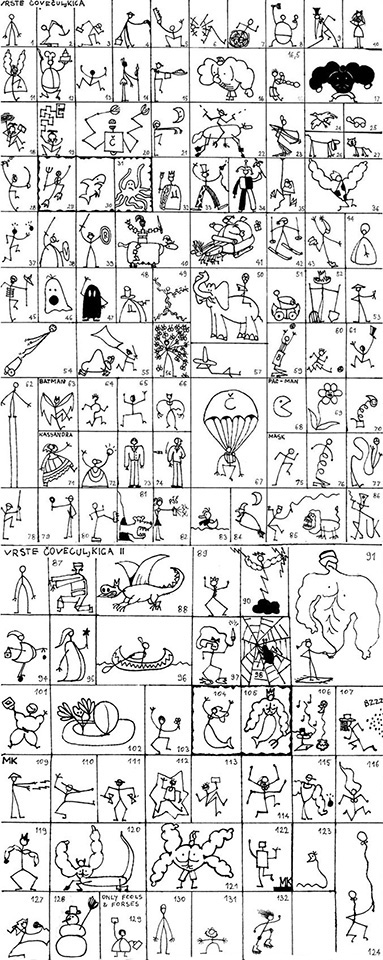 VRSTE ČOVEČULJKICA
1 2 3 4 5 6 7 8 9 10
11 12 13 14 15 16 16,5 17
18 19 20 21 22 23 24 25
26 27
28 29 30 31 32 33 34 35 36
37 38 39 40 41 42 43 44
45 46 47 48 49 50 51 52 53
54 55 56 57 58 59 60 61
62 BATMAN 63 64 65 66 Č 67 PAC-MAN 68 69 70
KASSANDRA 71 72 73 74 MASK 75 76 77
78 79 80 81 82 83 84 85 86
VRSTE ČOVEČULJKICA II
87 88 89 90 91
94 95 96 97 98
101 102 103 104 105 106 107
BZZZ
MK 109 110 111 112 113 114 115 116
119 120 121 122 MK 123 124
127 128 ONLY FOOLS & HORSES 129 130 131 132